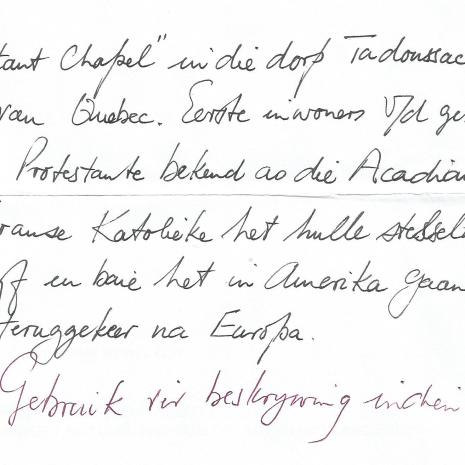 tant Chapel" in die dorp Tadoussac
van Quebec. Eerste inwoners v/d ges
Protestante bekend as die Acadian
ranse Katolieke het hulle stelsel
en baie het in Amerika gaan
teruggekeer na Europa.
Gebruik vir beskrywing indien